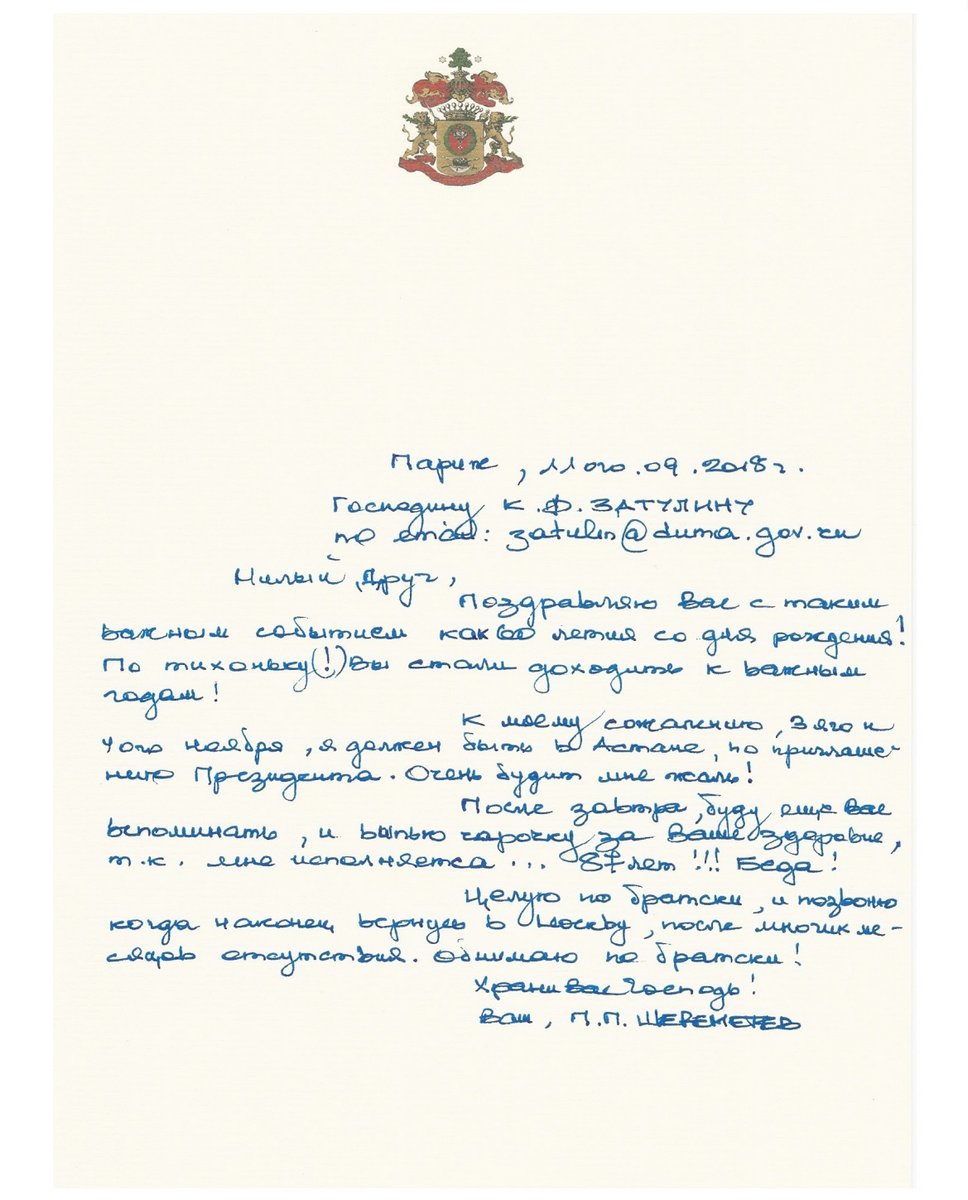 Париж, 11ого.09.2018г.
Господину К.Ф.ЗАТУЛИНУ
по email: zatulin@duma.gov.ru
Милый Друг,
Поздравляю Вас с таким
важным событием как 60 летия со дня рождения!
По тихоньку(!) Вы стали доходить к важным
годам!
К моему сожалению, 3яго и
4ого ноября, я должен быть в Астане, по приглаше-
нию Президента. Очень будит мне жаль!
После завтра, буду еще Вас
вспоминать, и выпью чарочку за Ваше здоровие,
т.к. мне исполняется... 87 лет!!! Беда!
Целую по братски, и позвоню
когда наконец вернусь в Москву, после многих ме-
сяцов отсутствия. Обнимаю по братски!
Храни Вас Господь!
Ваш, П.П. ШЕРЕМЕТЕВ